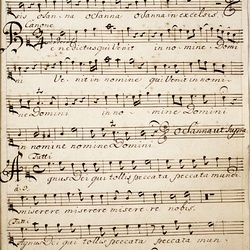 sis osanna osanna osanna in excelsis
Canone
Benedictus qui Venit in nomine Domi
ni Venit in nomine qui Venit in nomi
ne Domini in nomine Domini
Osanna ut supra
in nomine nomine Domini
Tutti
Agnus Dei qui tollis peccata peccata mundi
a 3.
miserere miserere miserere nobis.
Tutti
Agnus Dei qui tollis peccata peccata mundi